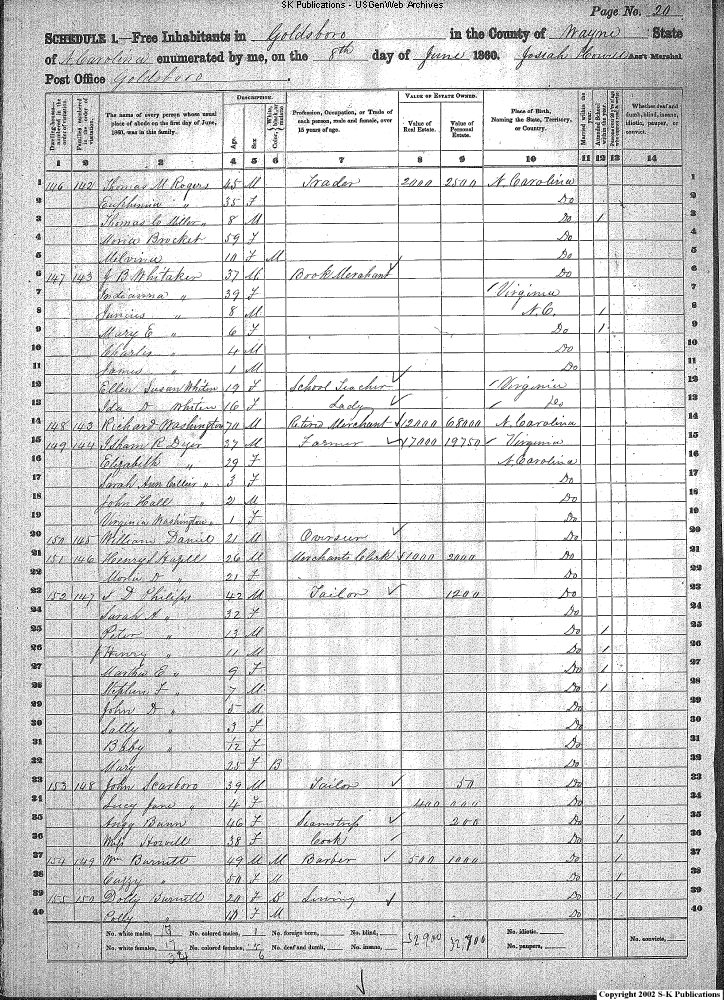 SK Publications - USGenWeb Archives
Page No. 20
SCHEDULE 1.—Free Inhabitants in Goldsboro in the County of Wayne State
of N. Carolina enumerated by me, on the 8th day of June 1860. Josiah Ass't Marshal
Post Office Goldsboro
Dwelling-houses—numbered in the order of visitation.
Families numbered in the order of visitation.
The name of every person whose usual place of abode on the first day of June, 1860, was in this family.
DESCRIPTION.
Age.
Sex.
Color,
Profession, Occupation, or Trade of each person, male and female, over 15 years of age.
VALUE OF ESTATE OWNED.
Value of Real Estate.
Value of Personal Estate.
Place of Birth, Naming the State, Territory, or Country.
Married within the year.
Attended School within the year.
Whether deaf and dumb, blind, insane, idiotic, pauper, or convict.
1 2 3 4 5 6 7 8 9 10 11 12 13 14
1 146 142 Thomas M Rogers 45 M Trader 2000 2500 N. Carolina 1
2 Euphemia " 35 F Do 2
3 Thomas C " 8 M Do 1 3
4 Brocket 59 F Do 4
5 Melvina 10 F M Do 5
6 147 143 J B Whitaker 37 M Book Merchant Do 6
7 Indianna " 39 F Virginia 7
8 Junius " 8 M N.C. 1 8
9 Mary E " 6 F Do 1 9
10 Charles " 4 M Do 10
11 James " 1 M Do 11
12 Ellen Susan 19 F School Teacher Virginia 12
13 Ida 16 F Lady Do 13
14 148 143 Richard Washington 70 M Retired Merchant $12000 68000 N. Carolina 14
15 149 144 Isham R Dyer 37 M Farmer 17000 19750 Virginia 15
16 Elizabeth " 29 F N. Carolina 16
17 Sarah Ann Collier " 3 F Do 17
18 John Hall " 2 M Do 18
19 Virginia Washington " 1 F Do 19
20 150 145 William Daniel 21 M Overseer Do 20
21 151 146 Henry 26 M Merchants Clerk $1000 2000 Do 21
22 " 21 F Do 22
23 152 147 D Philips 42 M Tailor 1200 Do 23
24 Sarah A " 32 F Do 24
25 Peter " 13 M Do 1 25
26 Henry " 11 M Do 1 26
27 Martha E " 9 F Do 1 27
28 Stephen F " 7 M Do 1 28
29 John D " 5 M Do 29
30 Sally " 3 F Do 30
31 Baby " F Do 31
32 Mary 25 F B Do 32
33 153 148 John Scarboro 39 M Tailor 50 Do 33
34 Lucy Jane " 4 F 400 Do 34
35 Bunn 46 F Seamstress 200 Do 1 35
36 Howell 38 F Cook Do 1 36
37 154 149 Wm Burnett 49 M M Barber 500 1000 Do 1 37
38 " 50 F M Do 1 38
39 155 150 Dolly Burnett 20 F B Do 1 39
40 Polly " 10 F M Do 40
No. white males, 17 No. colored males, 1 No. foreign born, No. blind, 52,900 32,700 No. idiotic, No. convicts,
No. white females, 17 No. colored females, 5 No. deaf and dumb, No. insane, No. paupers,
34 6
Copyright 2002 S-K Publications